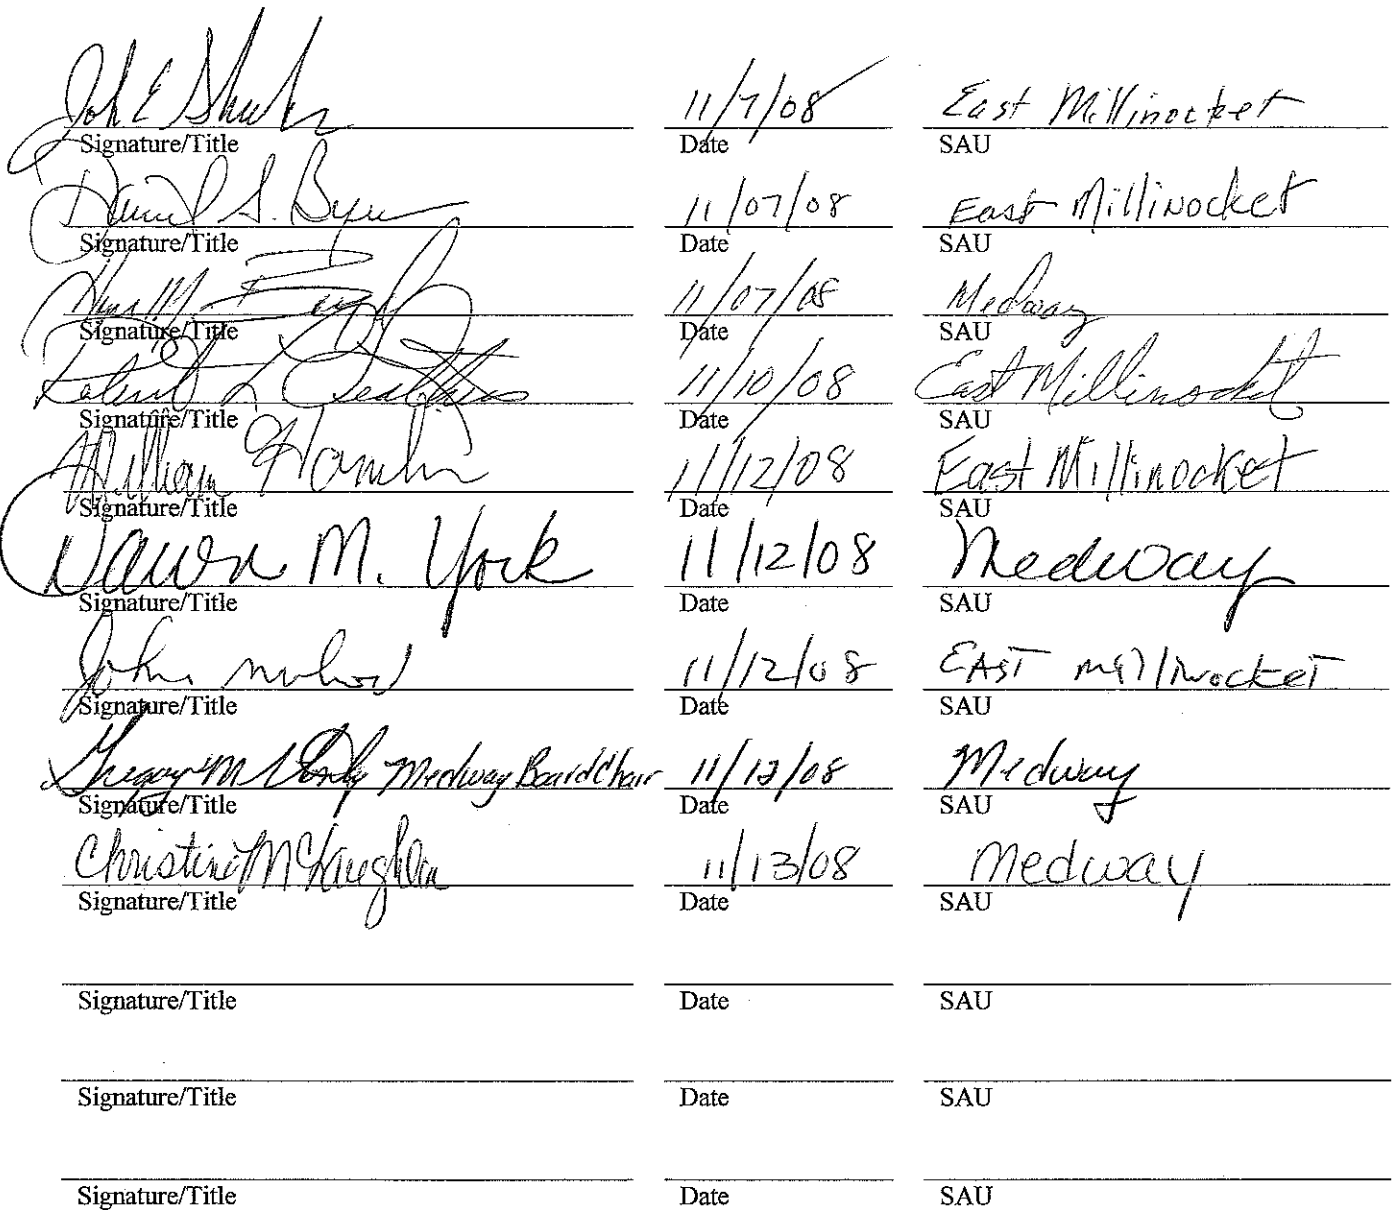 John E 11/7/08 East Millinocket
Signature/Title Date SAU
S. 11/07/08 East Millinocket
Signature/Title Date SAU
M. 11/07/08 Medway
Signature/Title Date SAU
L 11/10/08 East Millinocket
Signature/Title Date SAU
William Hamlin 11/12/08 East Millinocket
Signature/Title Date SAU
Dawn M. York 11/12/08 Medway
Signature/Title Date SAU
John 11/12/08 EAST Millinocket
Signature/Title Date SAU
Gregory M Medway Board Chair 11/12/08 Medway
Signature/Title Date SAU
Christine McLaughlin 11/13/08 Medway
Signature/Title Date SAU
Signature/Title Date SAU
Signature/Title Date SAU
Signature/Title Date SAU